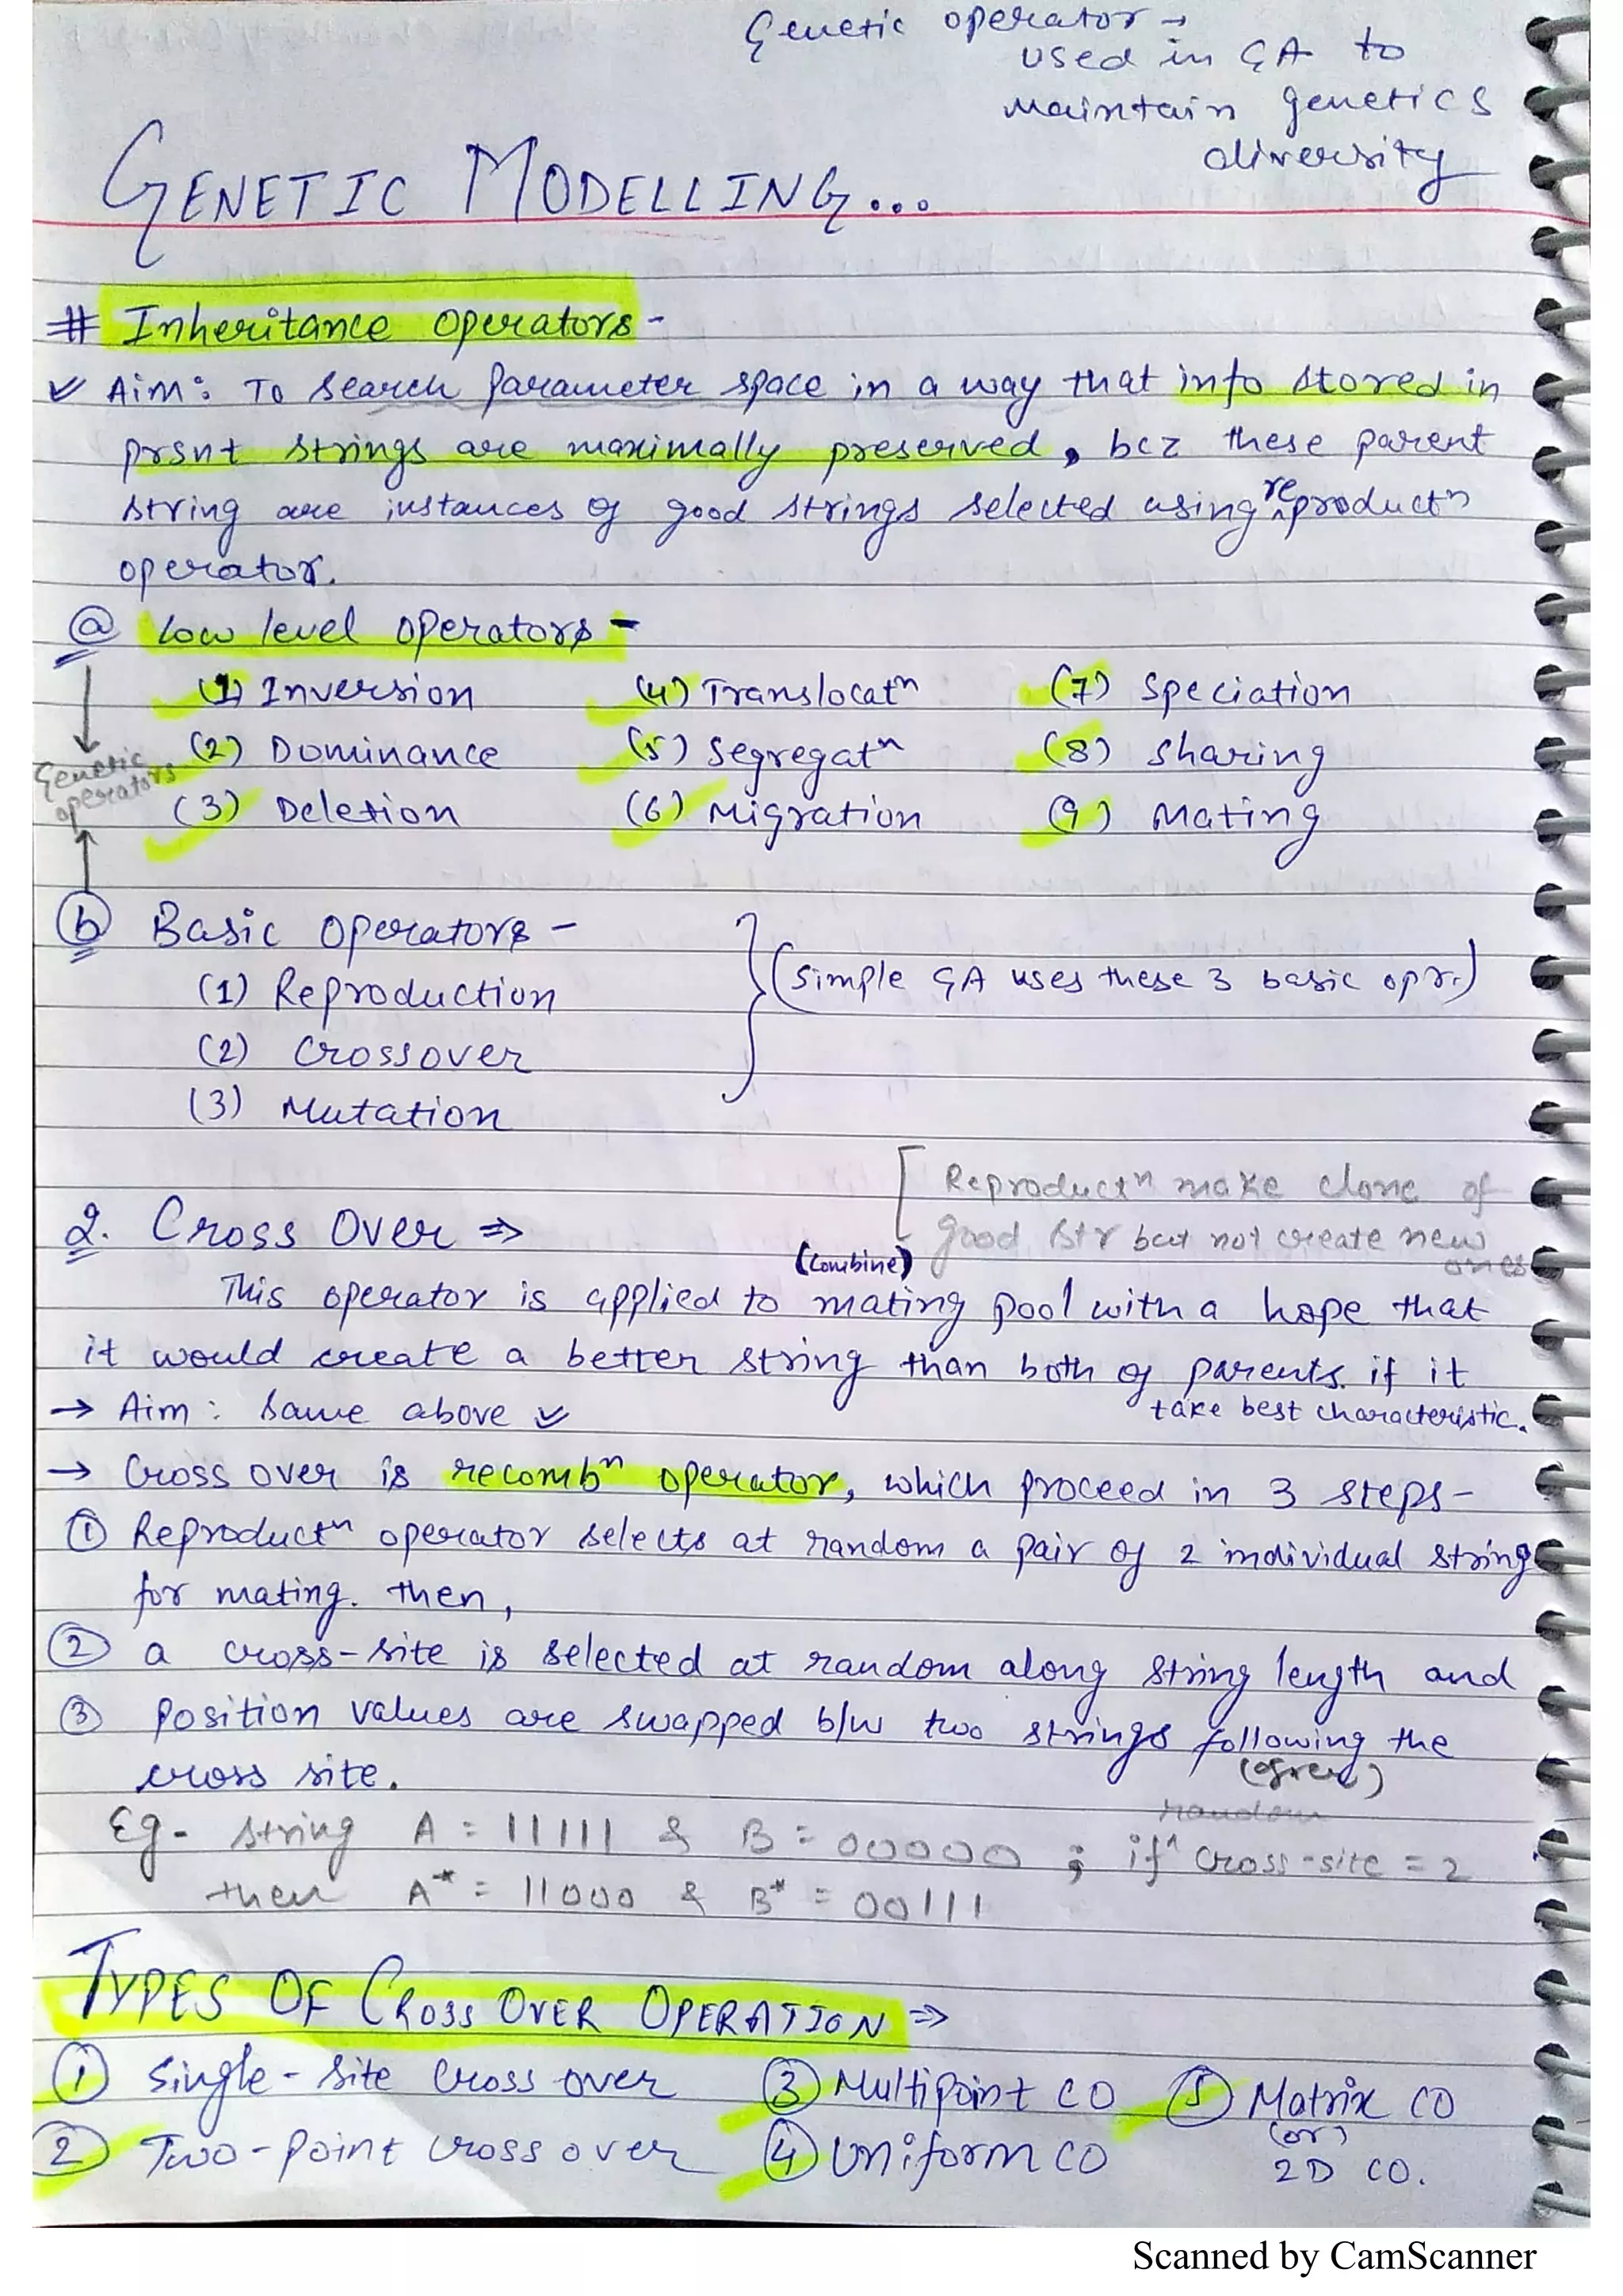 Genetic operator →
used in GA to
maintain genetics
diversity
GENETIC MODELLING...
# Inheritance operators -
✓ Aim: To search parameter space in a way that info stored in
prsnt strings are maximally preserved, bcz these parent
string are instances of good strings selected using reproductn
operator.
(a) Low level operators -
(1) Inversion (4) Translocatn (7) Speciation
(2) Dominance (5) Segregatn (8) Sharing
(3) Deletion (6) Migration (9) Mating
Genetic
operators
(b) Basic operators -
(1) Reproduction
(simple GA uses these 3 basic opr.)
(2) Crossover
(3) Mutation
[ Reproductn make clone of
good str but not create new
ones
2. Cross Over ⇒
(combine)
This operator is applied to mating pool with a hope that
it would create a better string than both of parents. if it
take best characteristic.
→ Aim: Same above ✓
→ Cross over is recombn operator, which proceed in 3 steps -
① Reproductn operator selects at random a pair of 2 individual string
for mating. then,
② a cross-site is selected at random along string length and
③ position values are swapped b/w two strings following the
cross site.
random
Eg- string A = 11111 & B = 00000 ; if ^ cross-site = 2
then A* = 11000 & B* = 00111
TYPES OF CROSS OVER OPERATION ⇒
① Single-site cross over ③ Multipoint CO ⑤ Matrix CO
(or)
② Two-point cross over ④ Uniform CO 2D CO.
Scanned by CamScanner